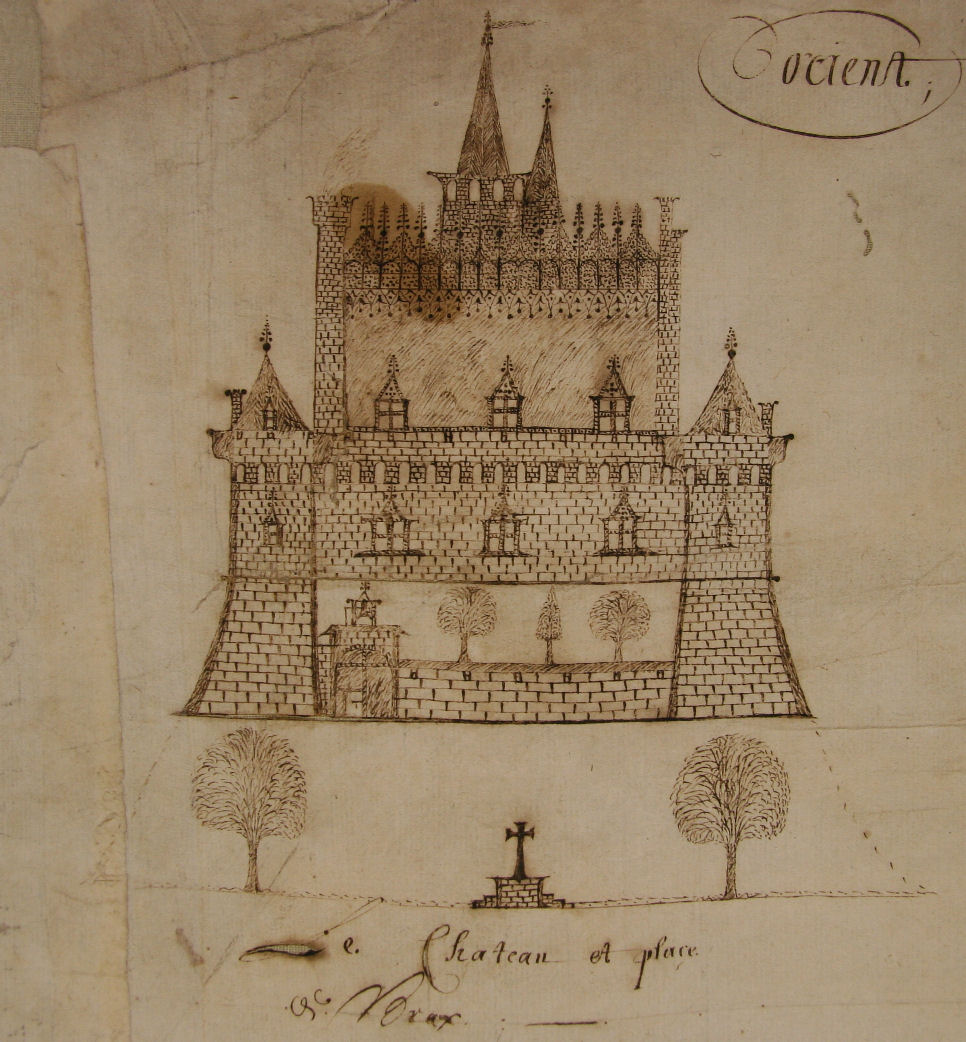 orient.
e. Chateau et place
de Brax.